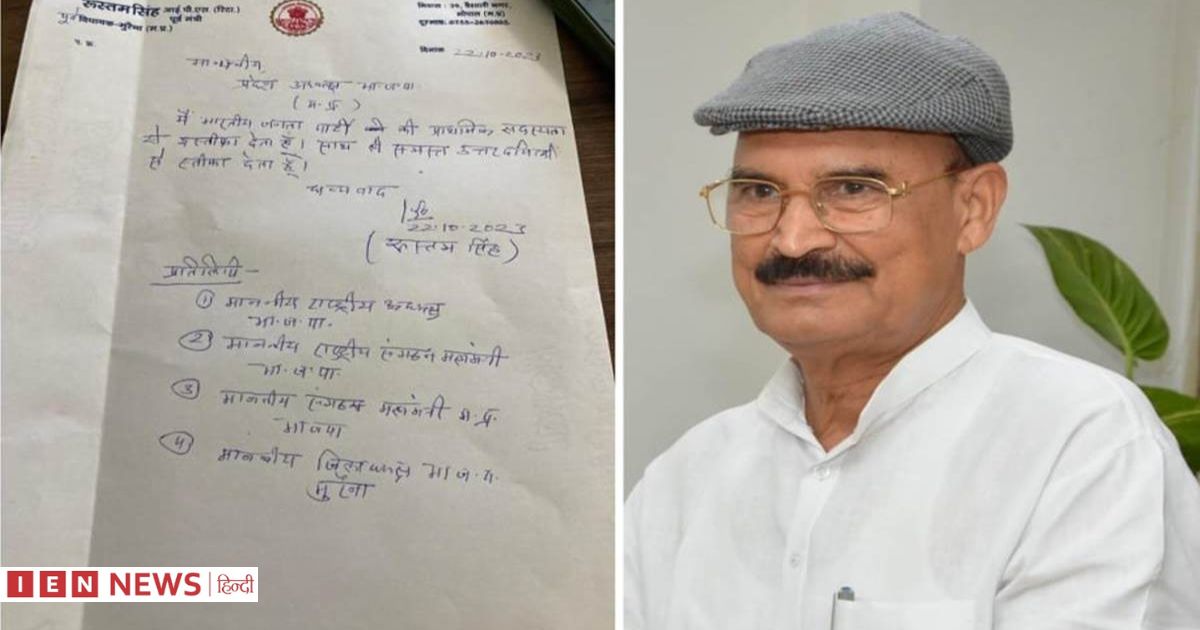 रूस्तम सिंह आई.पी.एस. (रिटा.)
पूर्व मंत्री
पूर्व विधायक-मुरैना (म.प्र.)
निवास : 39, वैशाली नगर,
भोपाल (म.प्र)
दूरभाष: 0755-2670005
प. क्र.
दिनांक 22.10.2023
माननीय
प्रदेश अध्यक्ष भाजपा
(म.प्र)
मैं भारतीय जनता पार्टी की प्राथमिक सदस्यता
से इस्तीफा देता हूँ। साथ ही समस्त उत्तरदायित्वों
से स्तीफा देता हूँ।
धन्यवाद
22.10.2023
(रूस्तम सिंह)
प्रतिलिपी -
① माननीय राष्ट्रीय अध्यक्ष
भा.ज.पा.
② माननीय राष्ट्रीय संगठन महामंत्री
भा.ज.पा.
③ माननीय संगठन महामंत्री म.प्र.
भाजपा
④ माननीय जिलाध्यक्ष भा.ज.पा.
मुरैना
IEN NEWS हिन्दी